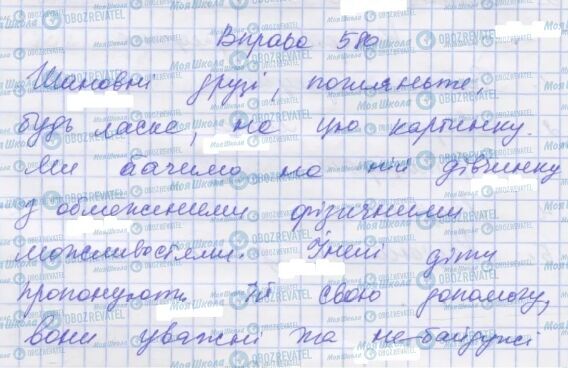 Вправа 580
Шановні друзі, погляньте,
будь ласка, на цю картинку.
Ми бачимо на ній дівчинку
з обмеженими фізичними
можливостями. Інші діти
пропонують їй свою допомогу,
вони уважні та не байдужі